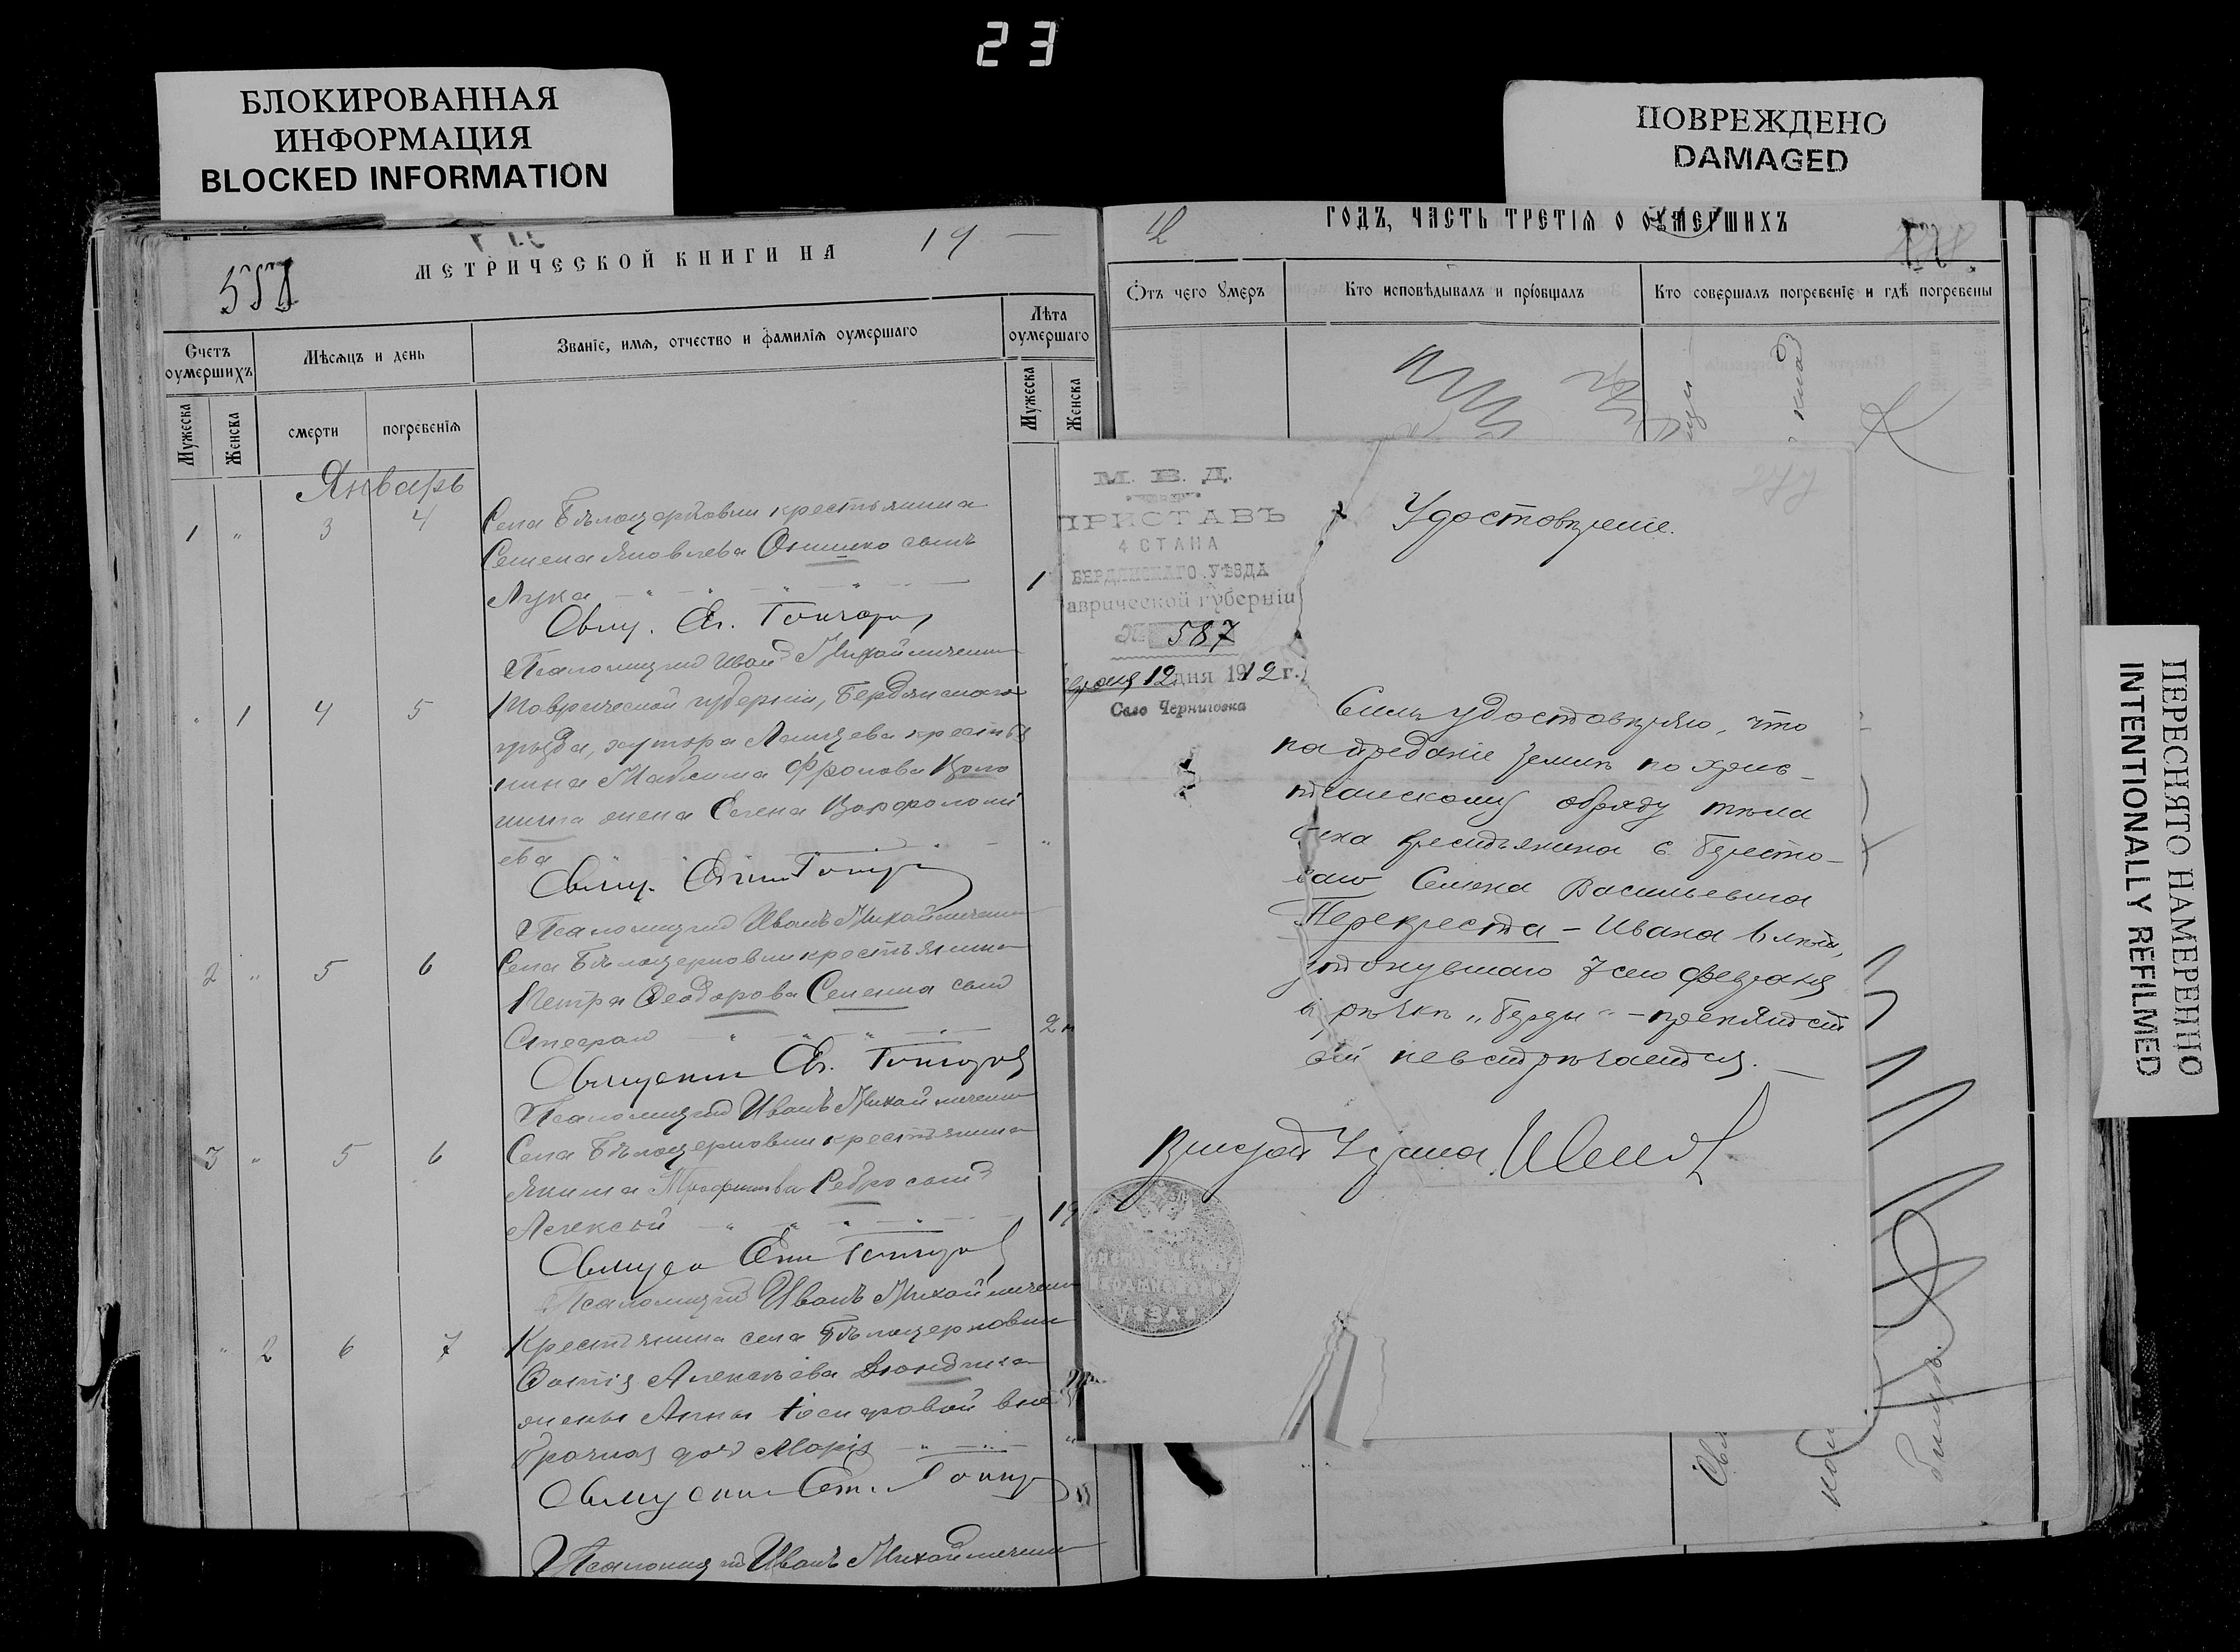 23
БЛОКИРОВАННАЯ
ИНФОРМАЦИЯ
BLOCKED INFORMATION
ПОВРЕЖДЕНО
DAMAGED
МЕТРИЧЕСКОЙ КНИГИ НА 19
Счетъ оумершихъ
Мѣсяцъ и день
Званіе, имя, отчество и фамилія оумершаго
Лѣта оумершаго
Мужеска
Женска
смерти
погребенія
Мужеска
Женска
Январь
1 " 3 4 Села Бѣлоцерковки крестьянина
Семена Яковлева Онишко сынъ
Лука 1
Свящ. Гончаров
Псаломщикъ Иванъ Михайличенко
" 1 4 5 Таврической губерніи, Бердянскаго
уѣзда, хутора крестья
нина Максима Фролова
жена Елена Варфоломѣ
ева "
Свящ.
Псаломщикъ Иванъ Михайличенко
2 " 5 6 Села Бѣлоцерковки крестьянина
Петра Феодорова сынъ
2
Священник Гончаров
Псаломщикъ Иванъ Михайличенко
3 " 5 6 Села Бѣлоцерковки крестьянина
Якима Трофимова Ребро сынъ
Алексѣй 19
Псаломщикъ Иванъ Михайличенко
" 2 6 7 Крестьянина села Бѣлоцерковки
Фотія Алексѣева
жены Анны Іосифовой внѣ
брачная дочь Марія "
Псаломщикъ Иванъ Михайличенко
12 ГОДЪ, ЧАСТЬ ТРЕТІЯ О ОУМЕРШИХЪ
Отъ чего умеръ
Кто исповѣдывалъ и пріобщалъ
Кто совершалъ погребеніе и гдѣ погребены
М. В. Д.
ПРИСТАВЪ
4 СТАНА
БЕРДЯНСКАГО УѢЗДА
аврической губерніи
№ 587
12 дня 1912 г.
Село Черниговка
Удостовѣреніе.
Симъ удостовѣряю, что
на преданіе землѣ по хрис-
тіанскому обряду тѣла
сына крестьянина с. Бересто-
ваго Семена Васильевича
Перекреста - Ивана 6 лѣтъ,
утонувшаго 7 сего февраля
въ рѣчкѣ „Берды" - препятств
ій невстрѣчается.
Приставъ 4 стана
ПЕРЕСНЯТО НАМЕРЕННО
INTENTIONALLY REFILMED